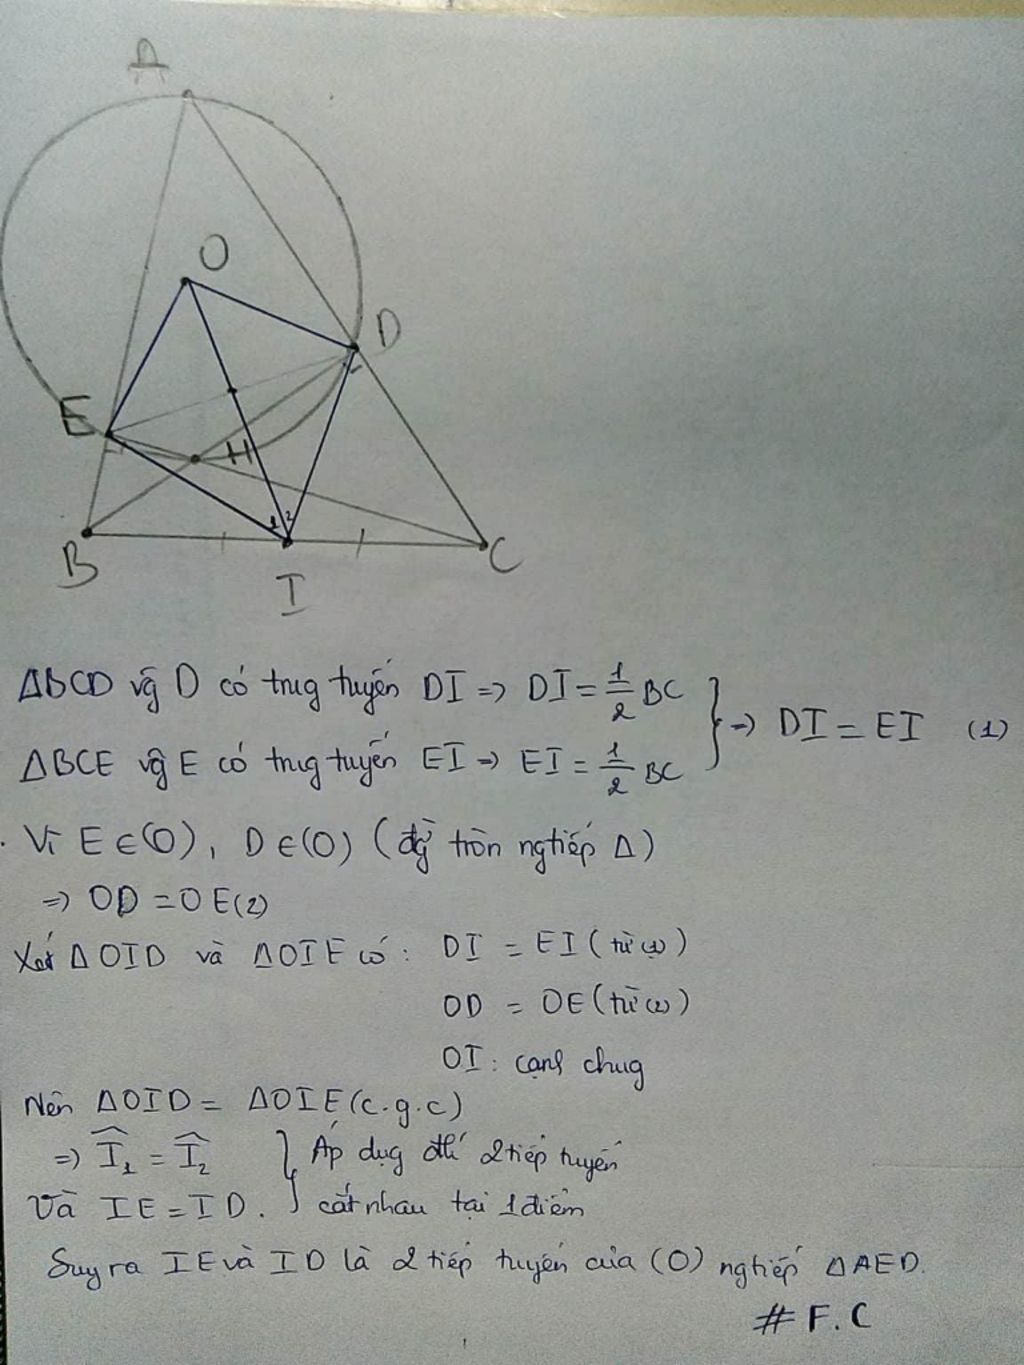 A
O
D
E
H
1 2
B
C
I
ΔBCD vg̃ D có trug tuyến DI => DI = 1/2 BC
ΔBCE vg̃ E có trug tuyến EI => EI = 1/2 BC
} => DI = EI (1)
. Vì E ∈ (O), D ∈ (O) (đg̀ tròn ngtiếp Δ)
=> OD = OE (2)
Xét ΔOID và ΔOIE có: DI = EI (từ (1))
OD = OE (từ (2))
OI: cạnh chug
Nên ΔOID = ΔOIE (c.g.c)
=> Î₁ = Î₂ } Áp dụg đlí 2 tiếp tuyến
Và IE = ID. cắt nhau tại 1 điểm
Suy ra IE và ID là 2 tiếp tuyến của (O) ngtiếp ΔAED.
# F.C